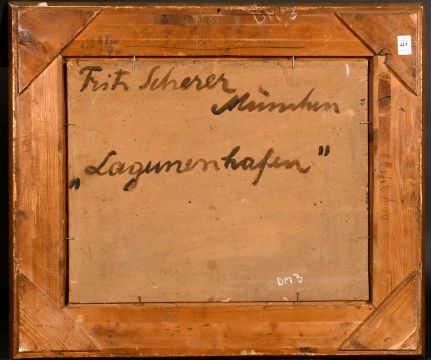 DM3
Fritz Scherer
München
„Lagunenhafen"
DM3